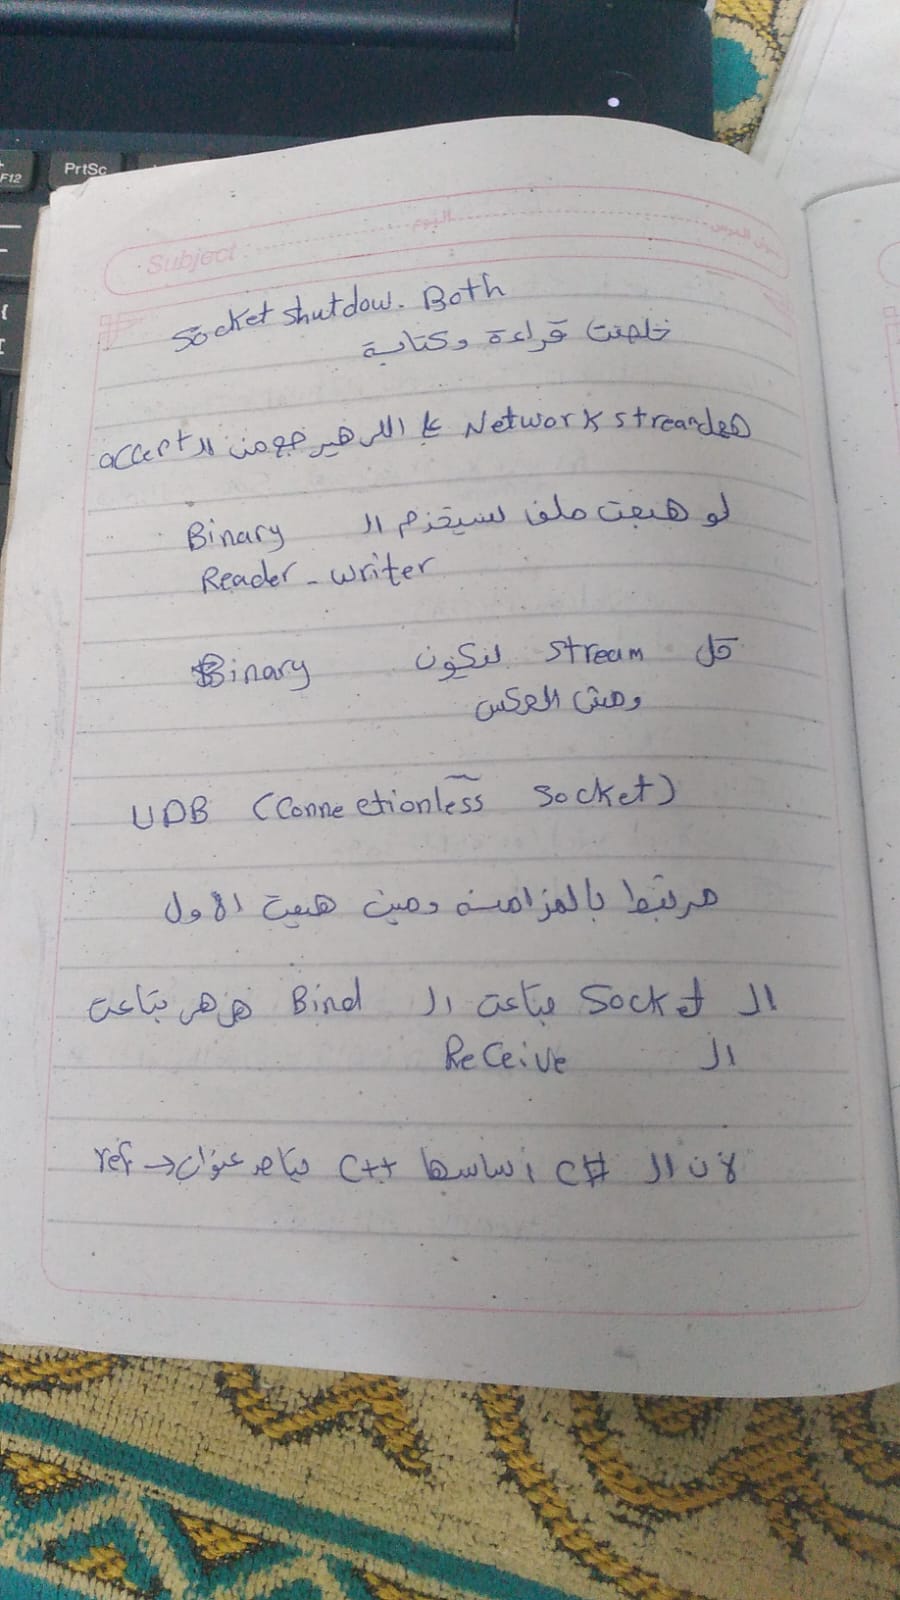 PrtSc
F12
Subject
اليوم
Socket shutdow. Both
خلصت قراءة وكتابة
هعمل Network stream ع اللى هيرجع من الـ accept
لو هبعت ملف نستخدم الـ Binary
Reader - writer
كل stream لتكون Binary
ومش العكس
UDB (Connectionless Socket)
مرتبط بالمزامنة ومين هيبعت الاول
الـ Socket بتاعت الـ Bind هى هى بتاعت
الـ Receive
لان الـ C# اساسها C++ عنوان → ref